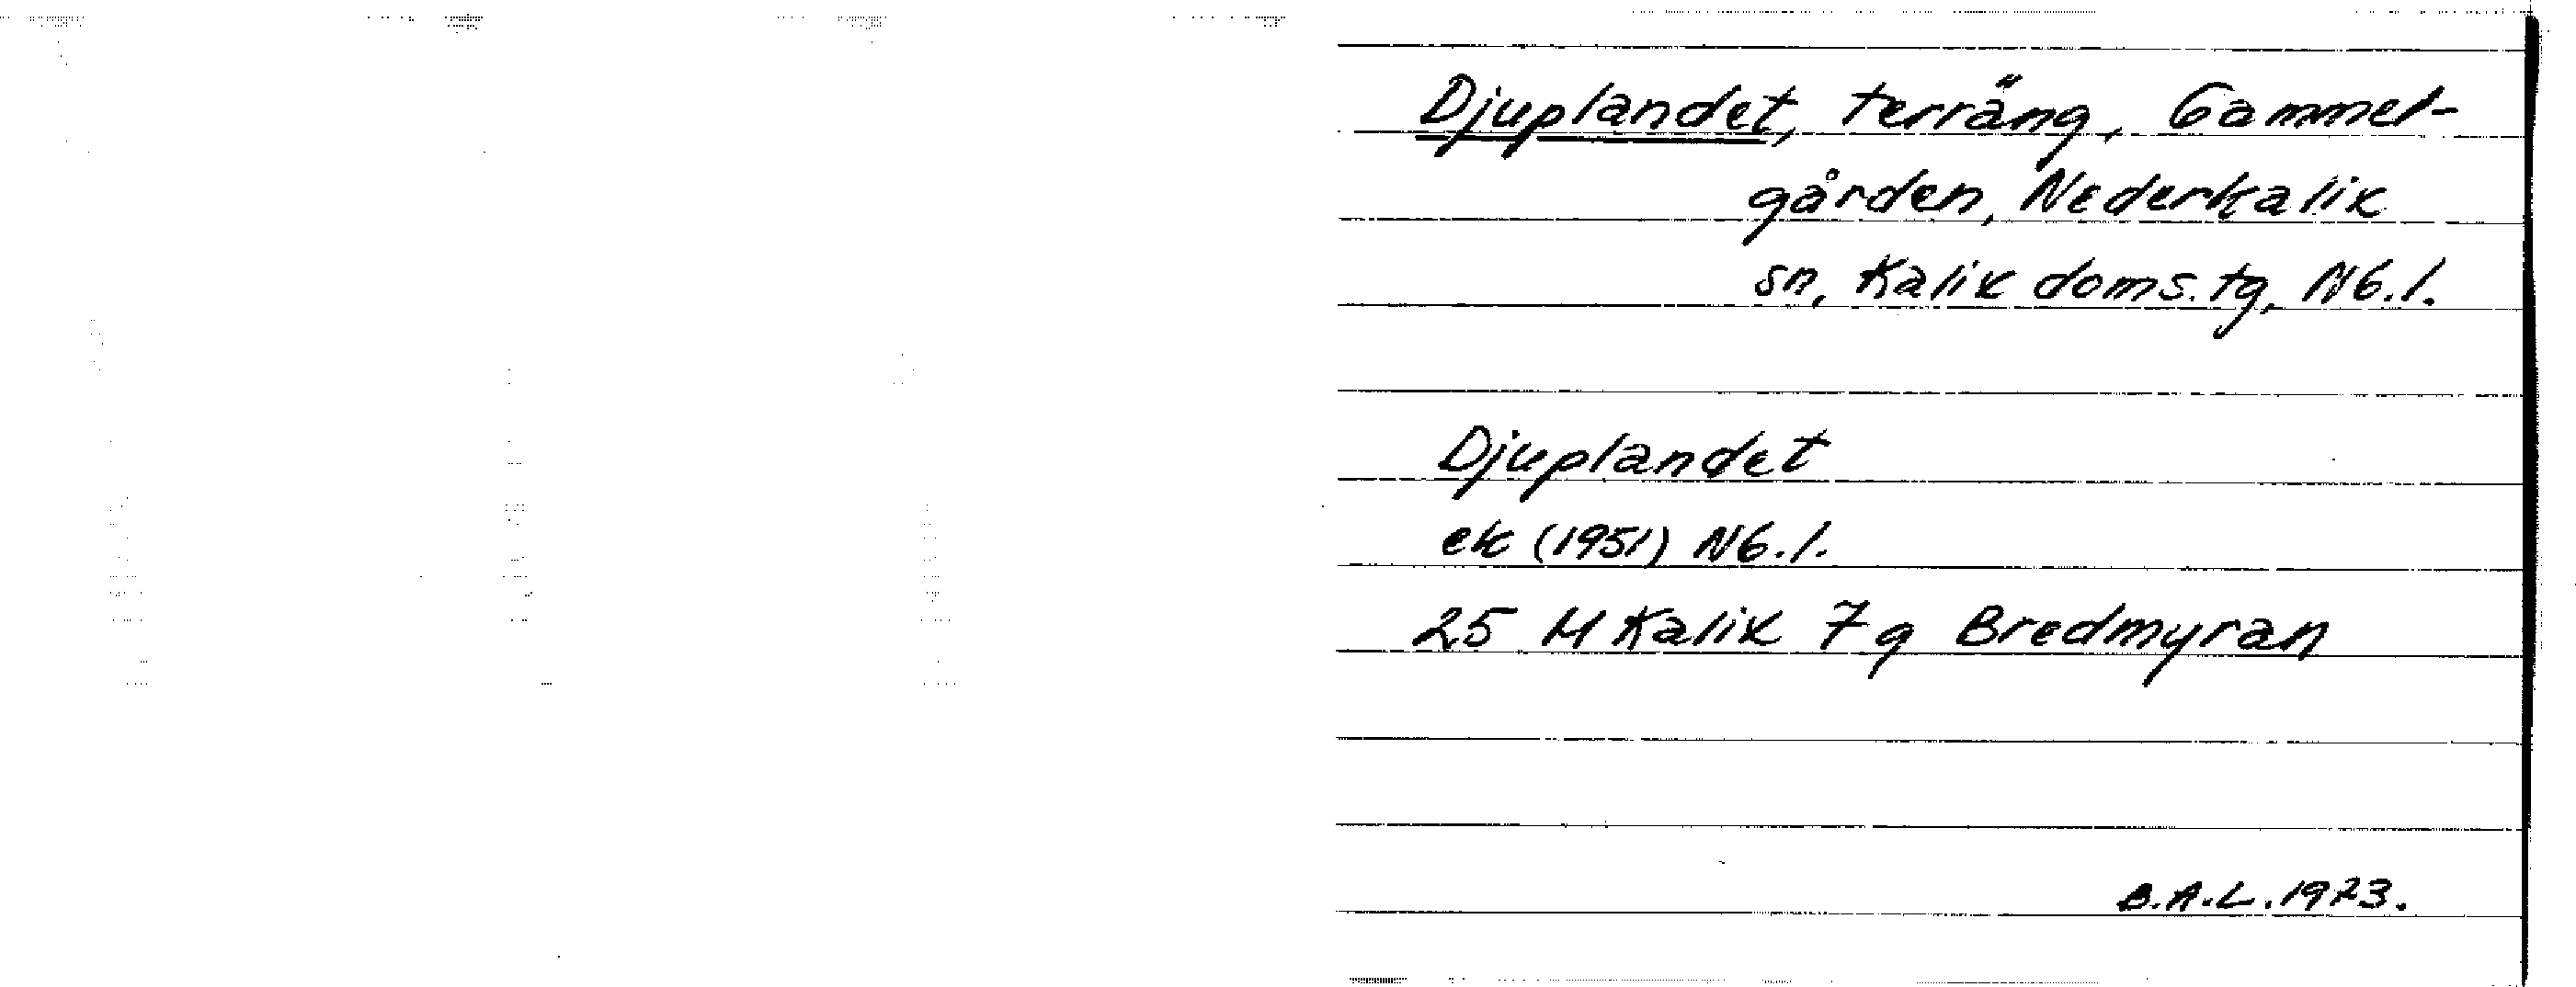 Djuplandet, terräng, Gammel-
gården, Nederkalix
sn, Kalix doms. tg, Nb.l.
Djuplandet
ek (1951) Nb.l.
25 M Kalix 7g Bredmyran
B.A.L. 1973.